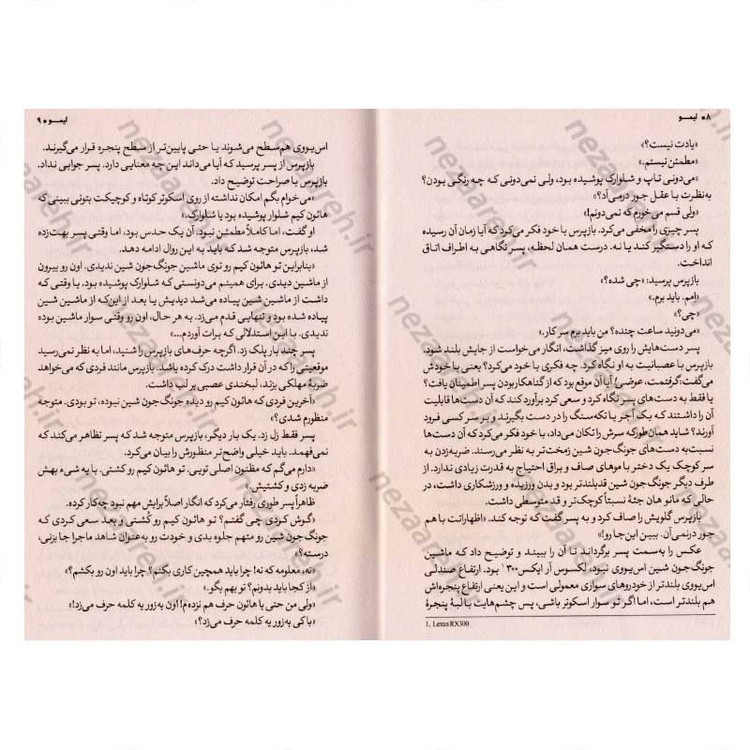 ۸ • لیمو
«یادت نیست؟»
«مطمئن نیستم.»
«می‌دونی تاپ و شلوارک پوشیده بود، ولی نمی‌دونی که چه رنگی بودن؟
به‌نظرت با عقل جور درمی‌آد؟»
«ولی قسم می‌خورم که نمی‌دونم!»
پسر چیزی را مخفی می‌کرد. بازپرس با خود فکر می‌کرد که آیا زمان آن رسیده
که او را دستگیر کند یا نه. درست همان لحظه، پسر نگاهی به اطراف اتاق
انداخت.
بازپرس پرسید: «چی شده؟»
«امم. باید برم.»
«چی؟»
«می‌دونید ساعت چنده؟ من باید برم سر کار.»
پسر دست‌هایش را روی میز گذاشت، انگار می‌خواست از جایش بلند شود.
بازپرس با عصبانیت به او نگاه کرد. چه فکری با خود می‌کرد؟ یعنی با خودش
می‌گفت: گرفتمت، عوضی! آیا آن موقع بود که از گناهکار بودن پسر اطمینان یافت؟
یا فقط به دست‌های پسر نگاه کرد و سعی کرد برآورد کند که آن دست‌ها قابلیت
آن را داشتند که یک آجر یا تکه‌سنگ را در دست بگیرند و بر سر کسی فرود
آورند؟ شاید همان‌طور که سرش را تکان می‌داد، با خود فکر می‌کرد که آن دست‌ها
نسبت‌به دست‌های جونگ‌جون شین زمخت‌تر به نظر می‌رسند. ضربه‌زدن به
سر کوچک یک دختر با موهای صاف و براق احتیاج به قدرت زیادی ندارد. از
طرف دیگر جونگ‌جون شین قدبلندتر بود و بدن ورزیده و ورزشکاری داشت، در
حالی که مانو هان جثهٔ نسبتاً کوچک‌تر و قد متوسطی داشت.
بازپرس گلویش را صاف کرد و به پسر گفت که توجه کند. «اظهاراتت با هم
جور درنمی‌آن. ببین این‌جا رو!»
عکس را به‌سمت پسر برگرداند تا آن را ببیند و توضیح داد که ماشین
جونگ‌جون شین اس‌یووی نبود، لکسوس آر ایکس۳۰۰ ۱ بود. ارتفاع صندلی
اس‌یووی بلندتر از خودروهای سواری معمولی است و این یعنی ارتفاع پنجره‌اش
هم بلندتر است، اما اگر تو سوار اسکوتر باشی، پس چشم‌هایت با لبهٔ پنجرهٔ
1. Lexus RX300
لیمو • ۹
اس‌یووی هم‌سطح می‌شوند یا حتی پایین‌تر از سطح پنجره قرار می‌گیرند.
بازپرس از پسر پرسید که آیا می‌داند این چه معنایی دارد. پسر جوابی نداد.
بازپرس با صراحت توضیح داد.
«می‌خوام بگم امکان نداشته از روی اسکوتر کوتاه و کوچیکت بتونی ببینی که
هائون کیم شلوار پوشیده بود یا شلوارک.»
او گفت، اما کاملاً مطمئن نبود، آن یک حدس بود، اما وقتی پسر بهت‌زده
شد، بازپرس متوجه شد که باید به این روال ادامه دهد.
«بنابراین تو هائون کیم رو توی ماشین جونگ‌جون شین ندیدی. اون رو بیرون
از ماشین دیدی. برای همینم می‌دونستی که شلوارک پوشیده بود. یا وقتی که
داشت از ماشین شین پیاده می‌شد دیدیش یا بعد از این‌که از ماشین شین
پیاده شده بود و تنهایی قدم می‌زد. به هر حال، اون رو وقتی سوار ماشین بوده
ندیدی. با این استدلالی که برات آوردم...»
پسر چند بار پلک زد. اگرچه حرف‌های بازپرس را شنید، اما به نظر نمی‌رسید
موقعیتی را که در آن قرار داشت درک کرده باشد. بازپرس مانند فردی که می‌خواهد
ضربهٔ مهلکی بزند، لبخندی عصبی بر لب داشت.
«آخرین فردی که هائون کیم رو دیده جونگ‌جون شین نبوده، تو بودی. متوجه
منظورم شدی؟»
پسر فقط زل زد. یک بار دیگر، بازپرس متوجه شد که پسر تظاهر می‌کند که
نمی‌فهمد. باید خیلی واضح‌تر منظورش را بیان می‌کرد.
«دارم می‌گم که مظنون اصلی تویی. تو هائون کیم رو کشتی. با یه شیء بهش
ضربه زدی و کشتیش.»
ظاهراً پسر طوری رفتار می‌کرد که انگار اصلاً برایش مهم نبود چه‌کار کرده.
«گوش کردی چی گفتم؟ تو هائون کیم رو کُشتی و بعد سعی کردی که
جونگ‌جون شین رو متهم جلوه بدی و خودت رو به‌عنوان شاهد ماجرا جا بزنی،
درسته؟»
«نه، معلومه که نه! چرا باید همچین کاری بکنم؟ چرا باید اون رو بکشم؟»
«از کجا باید بدونم؟ تو بهم بگو.»
«ولی من حتی با هائون حرف هم نزده‌م! اون به‌زور یه کلمه حرف می‌زد!»
«با کی به‌زور یه کلمه حرف می‌زد؟»
nezaareh.ir